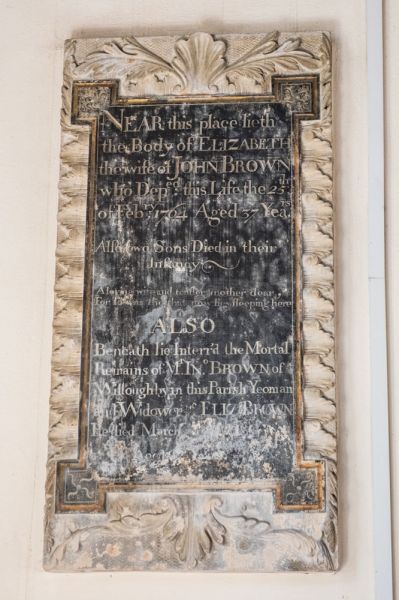 NEAR this place lieth
the Body of ELIZABETH
the wife of JOHN BROWN
who Dep.ed this Life the 25th
of Feb.ry 1764 Aged 37 Years
Also two Sons Died in their
Infancy
A loving wife and tender mother dear
sleeping here
ALSO
Beneath lie Interr'd the Mortal
Remains of Mr. Jno. BROWN of
Willoughby in this Parish Yeoman
and Widower of ELIZ. BROWN
He died March